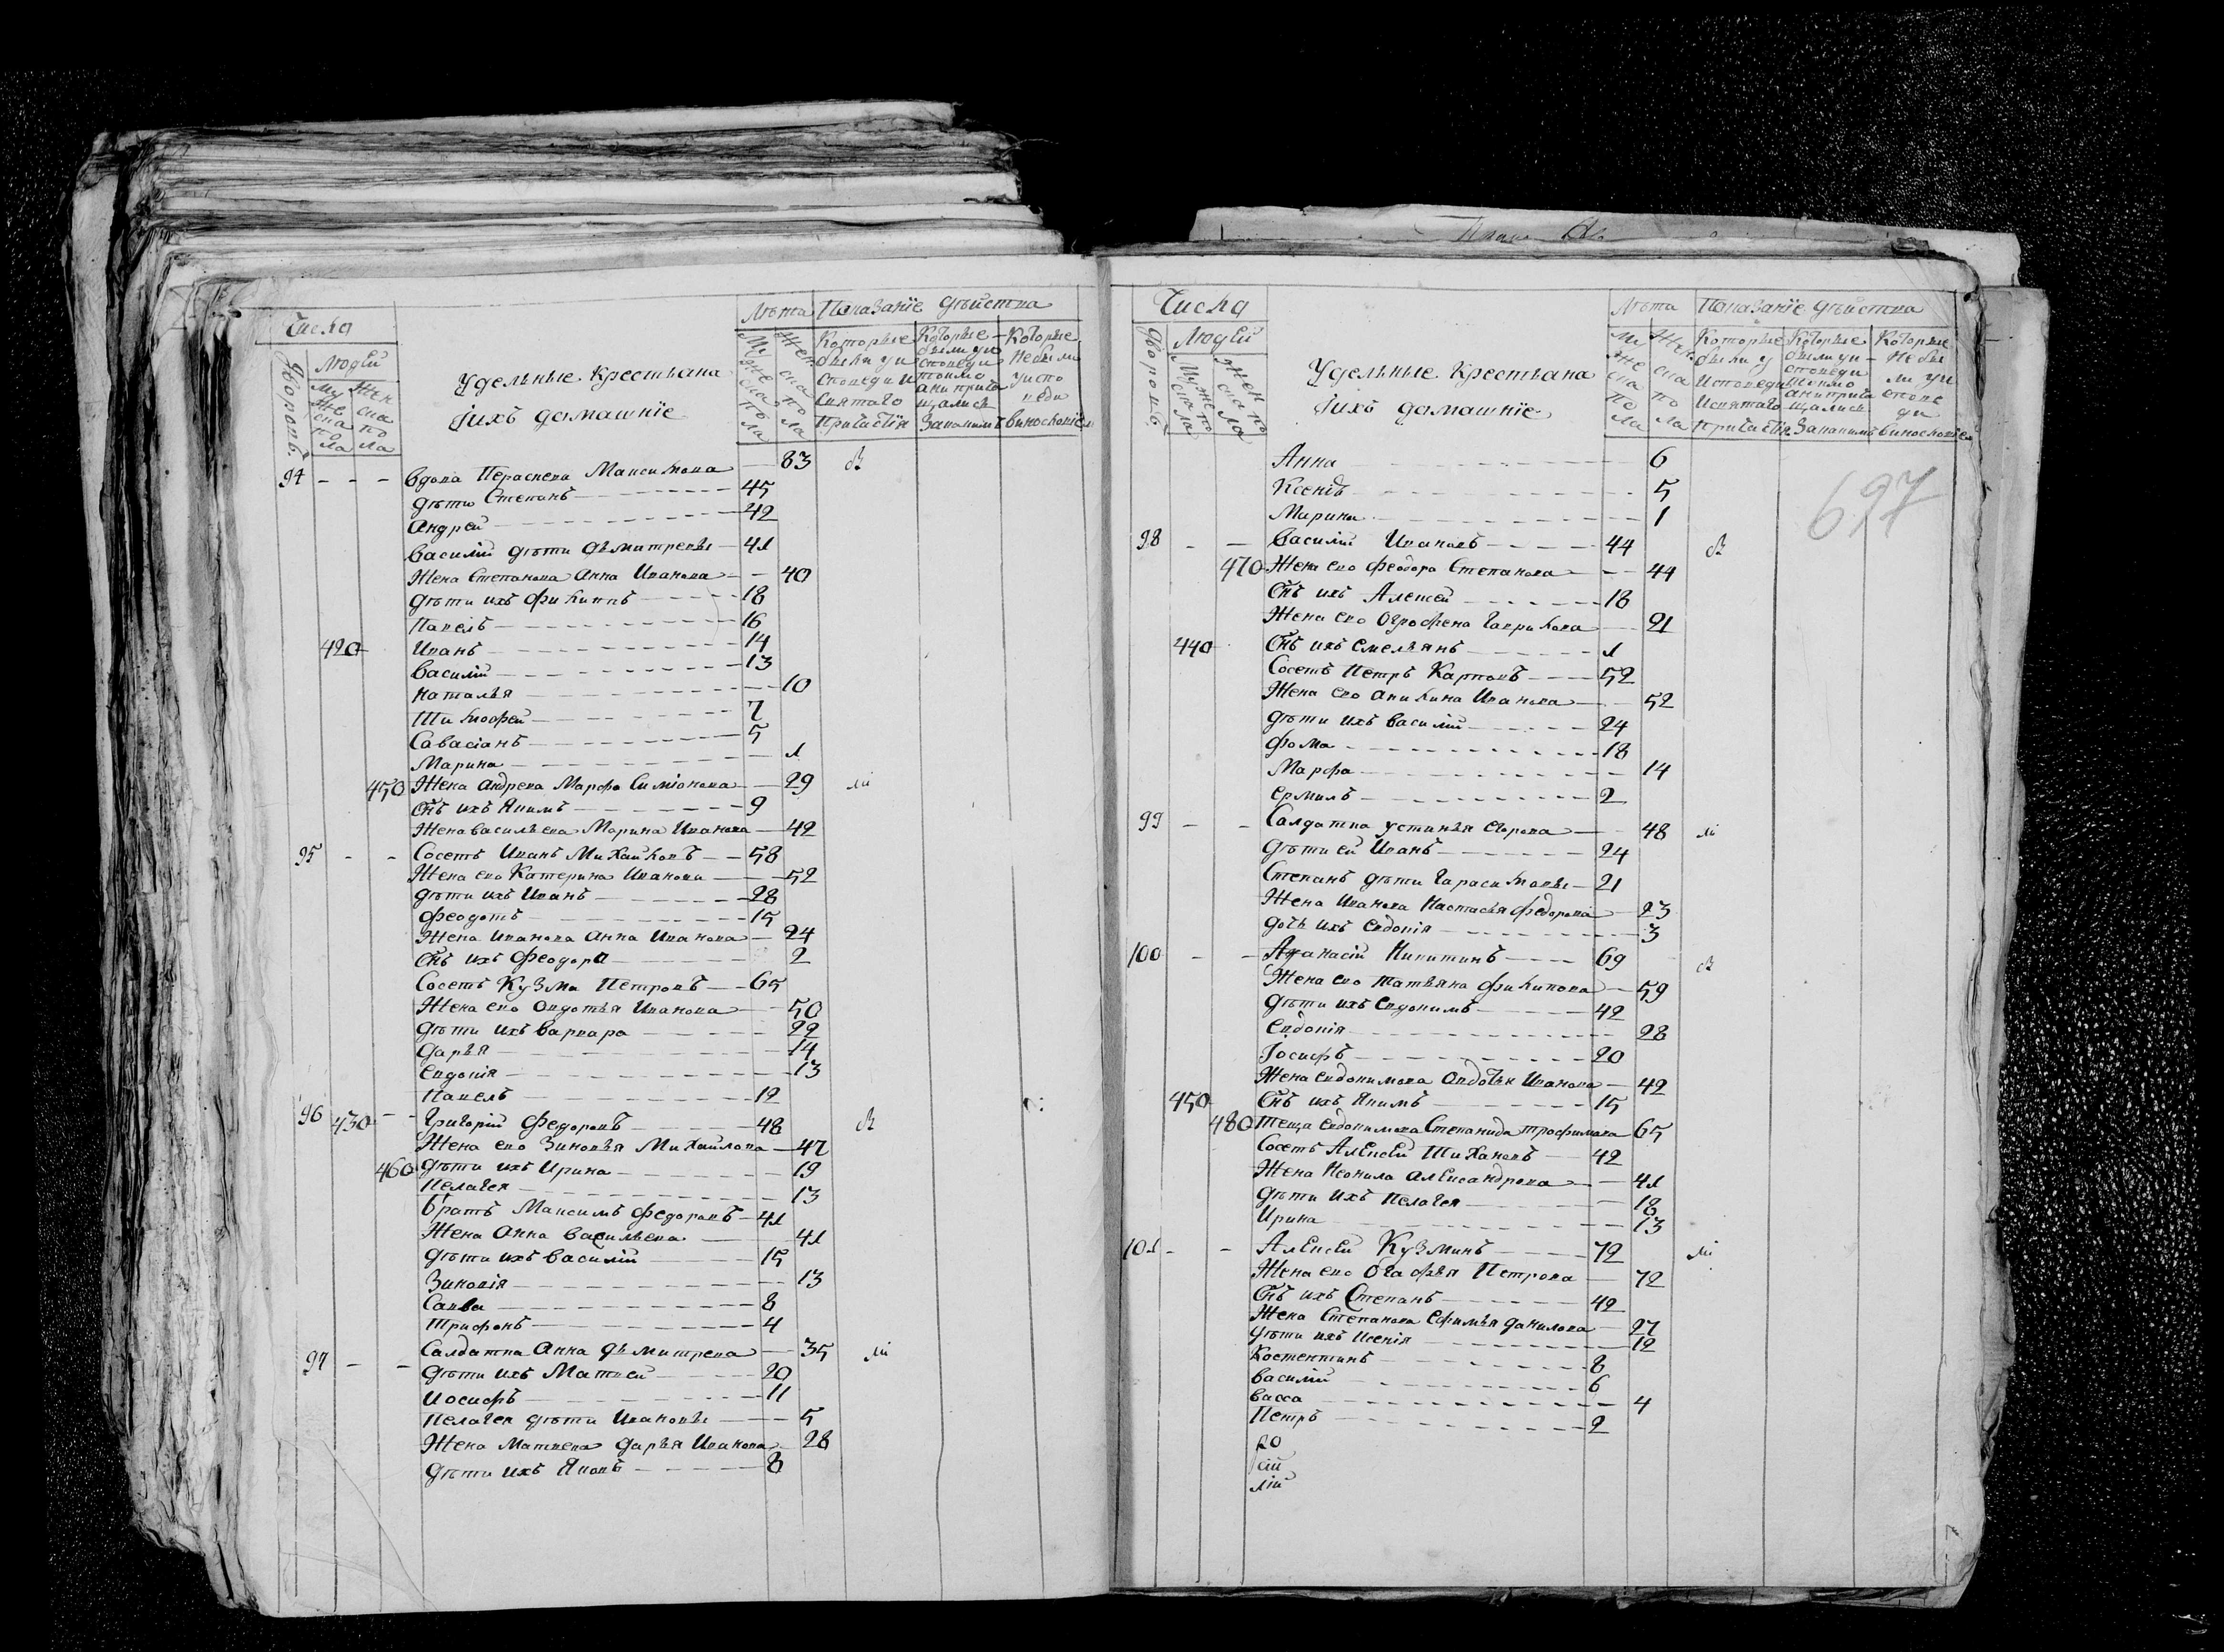 Числа
Дворовъ
Людей
Мужеска пола
Женска пола
Удельные Крестьяна
Iихъ домашнiе
Лѣта
Мужеска пола
Женска пола
Показанiе дѣйства
Которые были у исповеди и святаго причастiя
Которые были у исповеди токмо а не причащались
Которые не были у исповеди
94 - - - вдова Пераскева Максимова — 83
дѣти Степанъ — 45
Андрей — 42
Василiй дѣти Дѣмитревы — 41
Жена Степанова Анна Иванова — 40
дѣти ихъ Филиппъ — 18
Павелъ — 16
420 Иванъ — 14
Василiй — 13
Наталья — 10
Тимофей — 7
Савасiанъ — 5
Марина — 1
450 Жена Андрева Марфа Симiонова — 29
Снъ ихъ Якимъ — 9
Жена Васильева Марина Иванова — 42
95 - - Сосетъ Иванъ Михайловъ — 58
Жена ево Катерина Иванова — 52
дѣти ихъ Иванъ — 28
Феодотъ — 15
Жена Иванова Анна Иванова — 24
Снъ ихъ Феодоръ — 2
Сосетъ Кузма Петровъ — 65
Жена ево Овдотья Иванова — 50
дѣти ихъ Варвара — 22
Дарья — 14
Евдокiя — 13
Павелъ — 12
96 430 - - Григорiй Федоровъ — 48
Жена ево Зиновья Михайлова — 47
460 дѣти ихъ Ирина — 19
Пелагея — 13
братъ Максимъ Федоровъ — 41
Жена Анна Васильева — 41
дѣти ихъ Василiй — 15
Зиновiя — 13
Савва — 8
Трифонъ — 4
97 - - Салдатка Анна Дѣмитрева — 35
дѣти ихъ Матвей — 20
Иосифъ — 11
Пелагея дѣти Ивановы — 5
Жена Матвева Дарья Иванова — 28
дѣти ихъ Яковъ — 8
Числа
Дворовъ
Людей
Мужеска пола
Женска пола
Удельные Крестьяна
Iихъ домашнiе
Лѣта
Мужеска пола
Женска пола
Показанiе дѣйства
Которые были у исповеди и святаго причастiя
Которые были у исповеди токмо а не причащались
Которые не были у исповеди
697
Анна — 6
Ксенiя — 5
Марина — 1
98 - - Василiй Ивановъ — 44
470 Жена ево Феодора Степанова — 44
Снъ ихъ Алексей — 18
Жена ево Огрофена Гаврилова — 21
440 Снъ ихъ Емельянъ — 1
Сосетъ Петръ Карповъ — 52
Жена ево Акилина Иванова — 52
дѣти ихъ Василiй — 24
Фома — 18
Марфа — 14
Ермилъ — 2
99 - - Салдатка Устинья Егорова — 48
дѣти ей Иванъ — 24
Степанъ дѣти Гарасимовы — 21
Жена Иванова Настасья Федорова — 23
дочь ихъ Евдокiя — 3
100 - - Афанасiй Никитинъ — 69
Жена ево Татьяна Филипова — 59
дѣти ихъ Евдокимъ — 42
Евдокiя — 28
Iосифъ — 20
Жена Евдокимова Овдотья Иванова — 42
450 Снъ ихъ Якимъ — 15
480 Теща Евдокимова Степанида Трофимова 65
Сосетъ Алексей Тихановъ — 42
Жена Неонила Александрова — 41
дѣти ихъ Пелагея — 18
Ирина — 13
101 - - Алексей Кузминъ — 72
Жена ево Огафья Петрова — 72
Снъ ихъ Степанъ — 42
Жена Степанова Ефимья Данилова — 27
дѣти ихъ Ксенiя — 12
Костентинъ — 8
Василiй — 6
Васса — 4
Петръ — 2